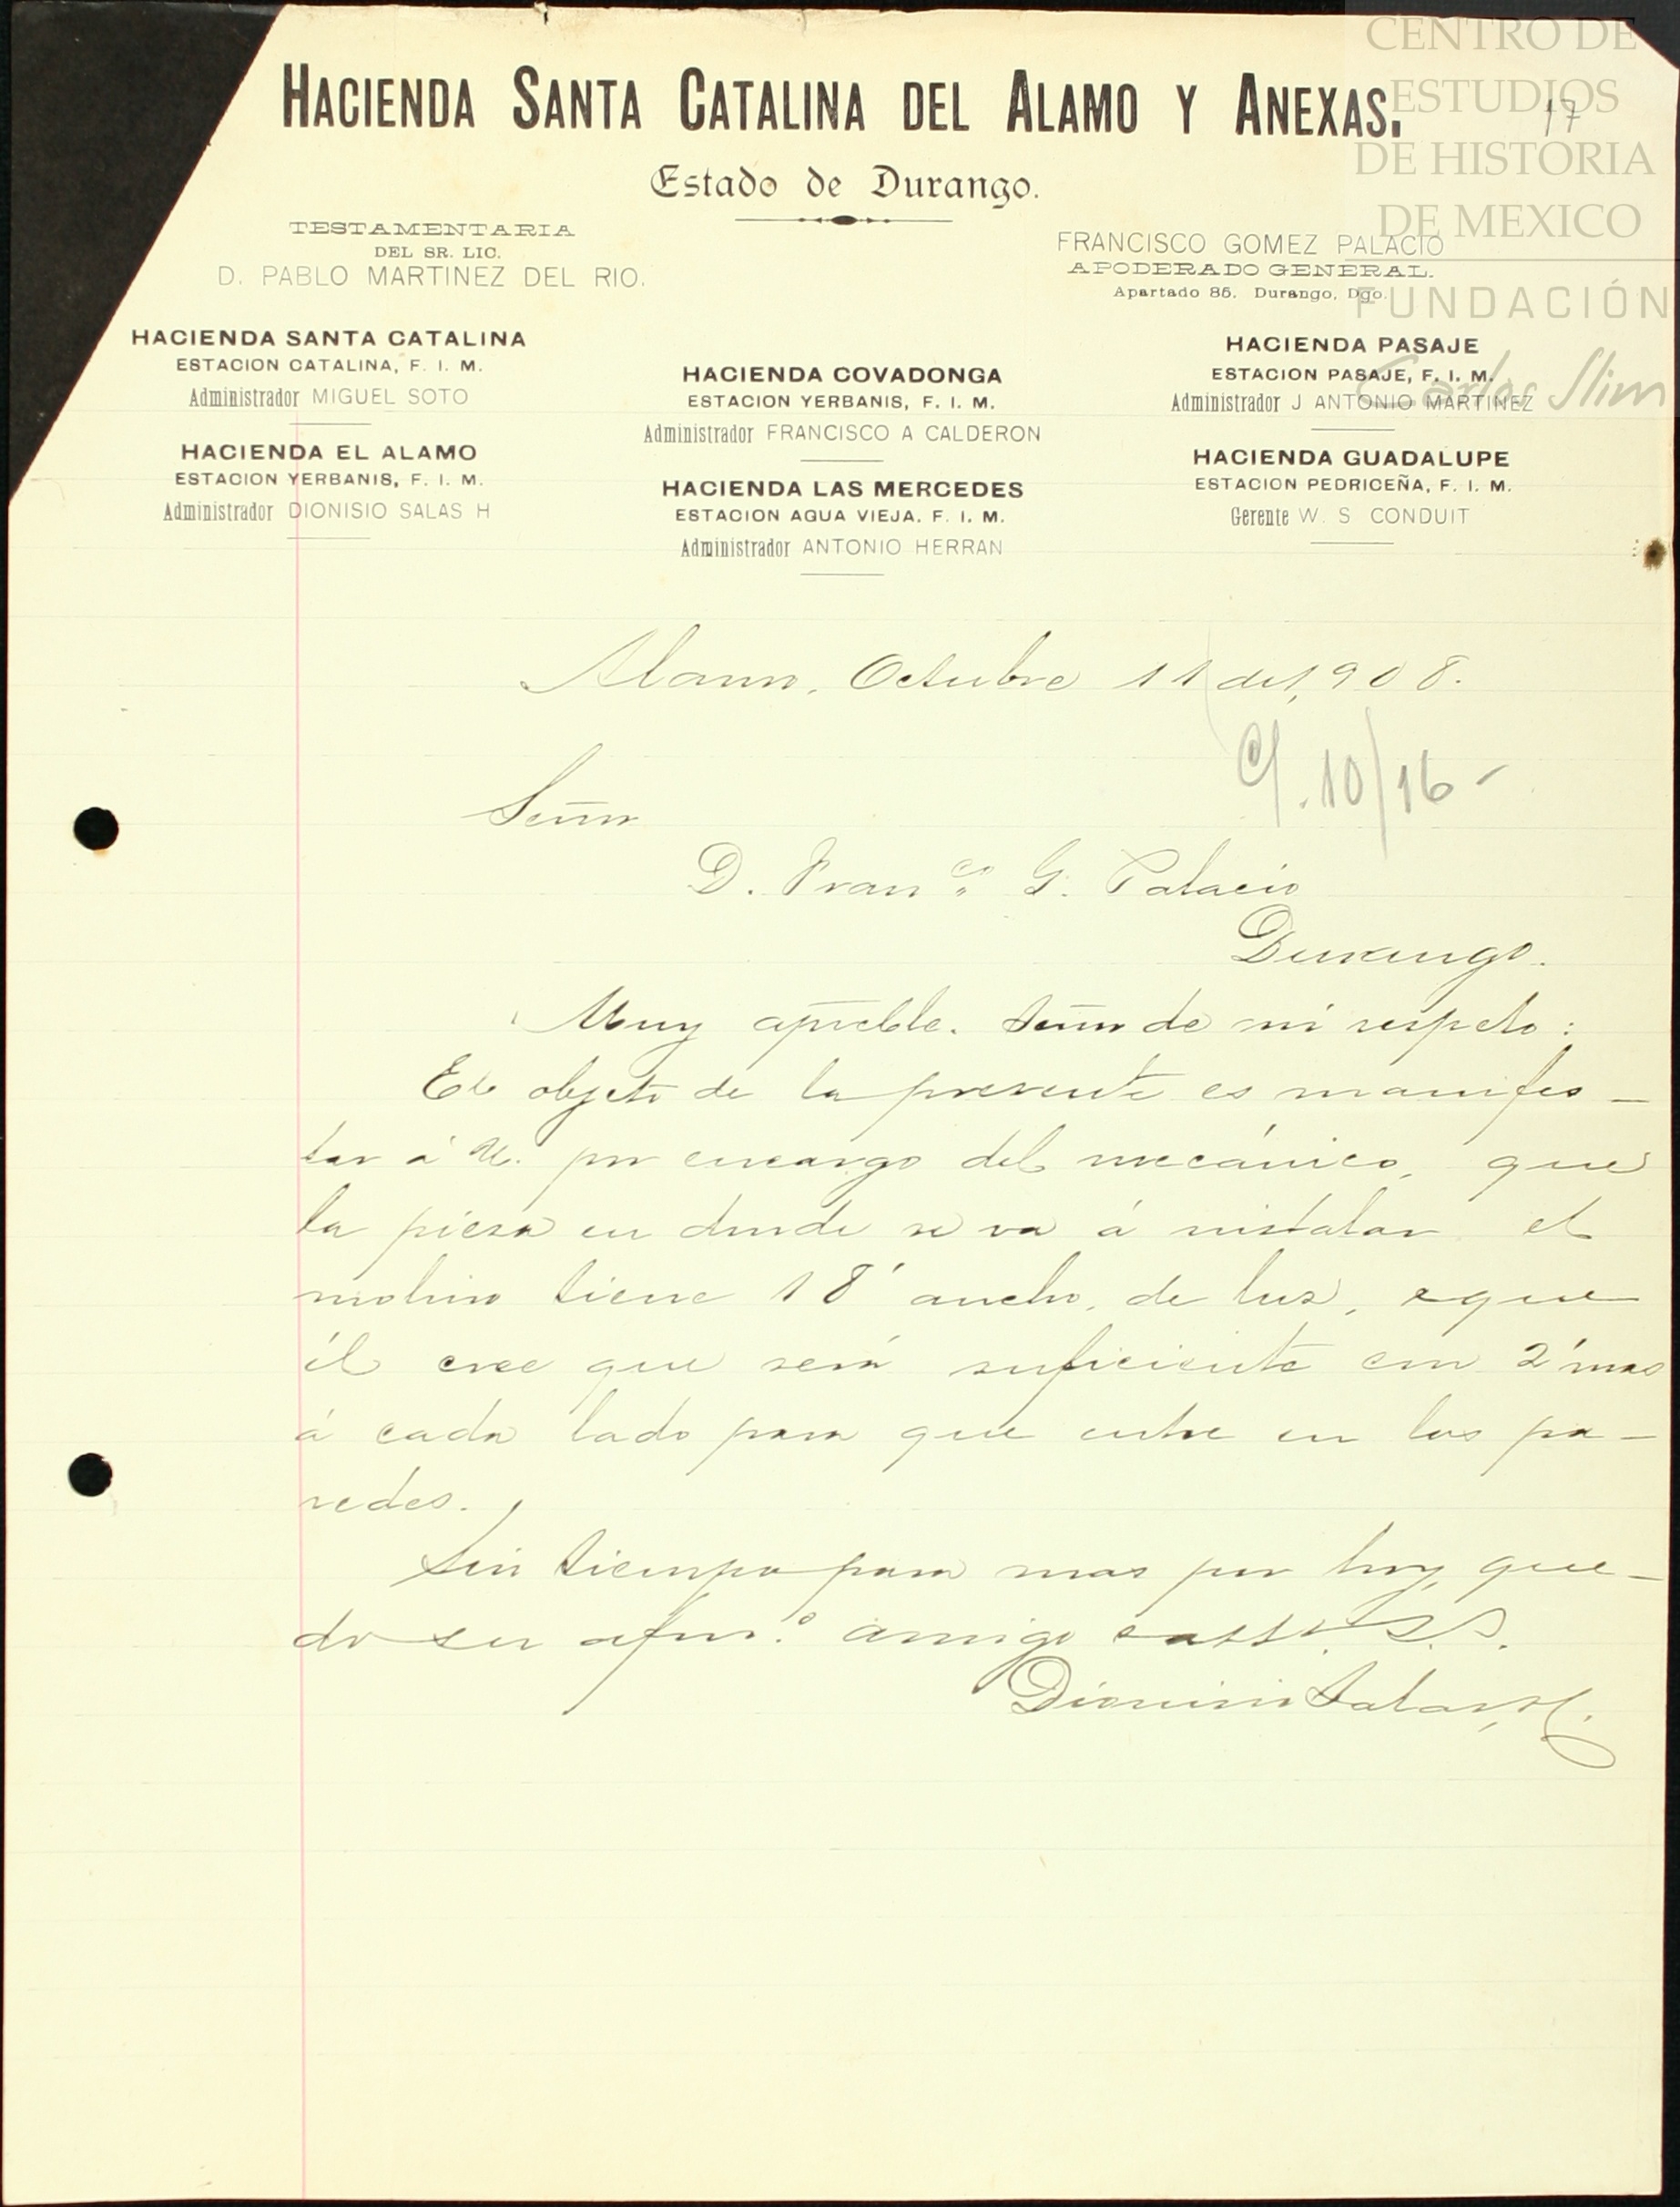 HACIENDA SANTA CATALINA DEL ALAMO Y ANEXAS.
Estado de Durango.
TESTAMENTARIA
DEL SR. LIC.
D. PABLO MARTINEZ DEL RIO.
FRANCISCO GOMEZ PALACIO
APODERADO GENERAL.
Apartado 85. Durango, Dgo.
HACIENDA SANTA CATALINA
ESTACION CATALINA, F. I. M.
Administrador MIGUEL SOTO
HACIENDA EL ALAMO
ESTACION YERBANIS, F. I. M.
Administrador DIONISIO SALAS H
HACIENDA COVADONGA
ESTACION YERBANIS, F. I. M.
Administrador FRANCISCO A CALDERON
HACIENDA LAS MERCEDES
ESTACION AGUA VIEJA. F. I. M.
Administrador ANTONIO HERRAN
HACIENDA PASAJE
ESTACION PASAJE, F. I. M.
Administrador J ANTONIO MARTINEZ
HACIENDA GUADALUPE
ESTACION PEDRICEÑA, F. I. M.
Gerente W. S CONDUIT
CENTRO DE
ESTUDIOS
DE HISTORIA
DE MEXICO
FUNDACIÓN
Carlos Slim
17
Alamo, Octubre 11 de 1,908.
C/. 10/16-
Señor
D. Franco. G. Palacio
Durango.
Muy apreble. Señor de mi respeto:
El objeto de la presente es manifes-
tar á U. por encargo del mecánico, que
la piesa en donde se va á instalar el
molino tiene 18' ancho, de luz, y que
él cree que será suficiente con 2' mas
á cada lado para que entre en las pa-
redes.
Sin tiempo para mas por hoy, que-
do su afmo. amigo S.S.
Dionisio Salas H.